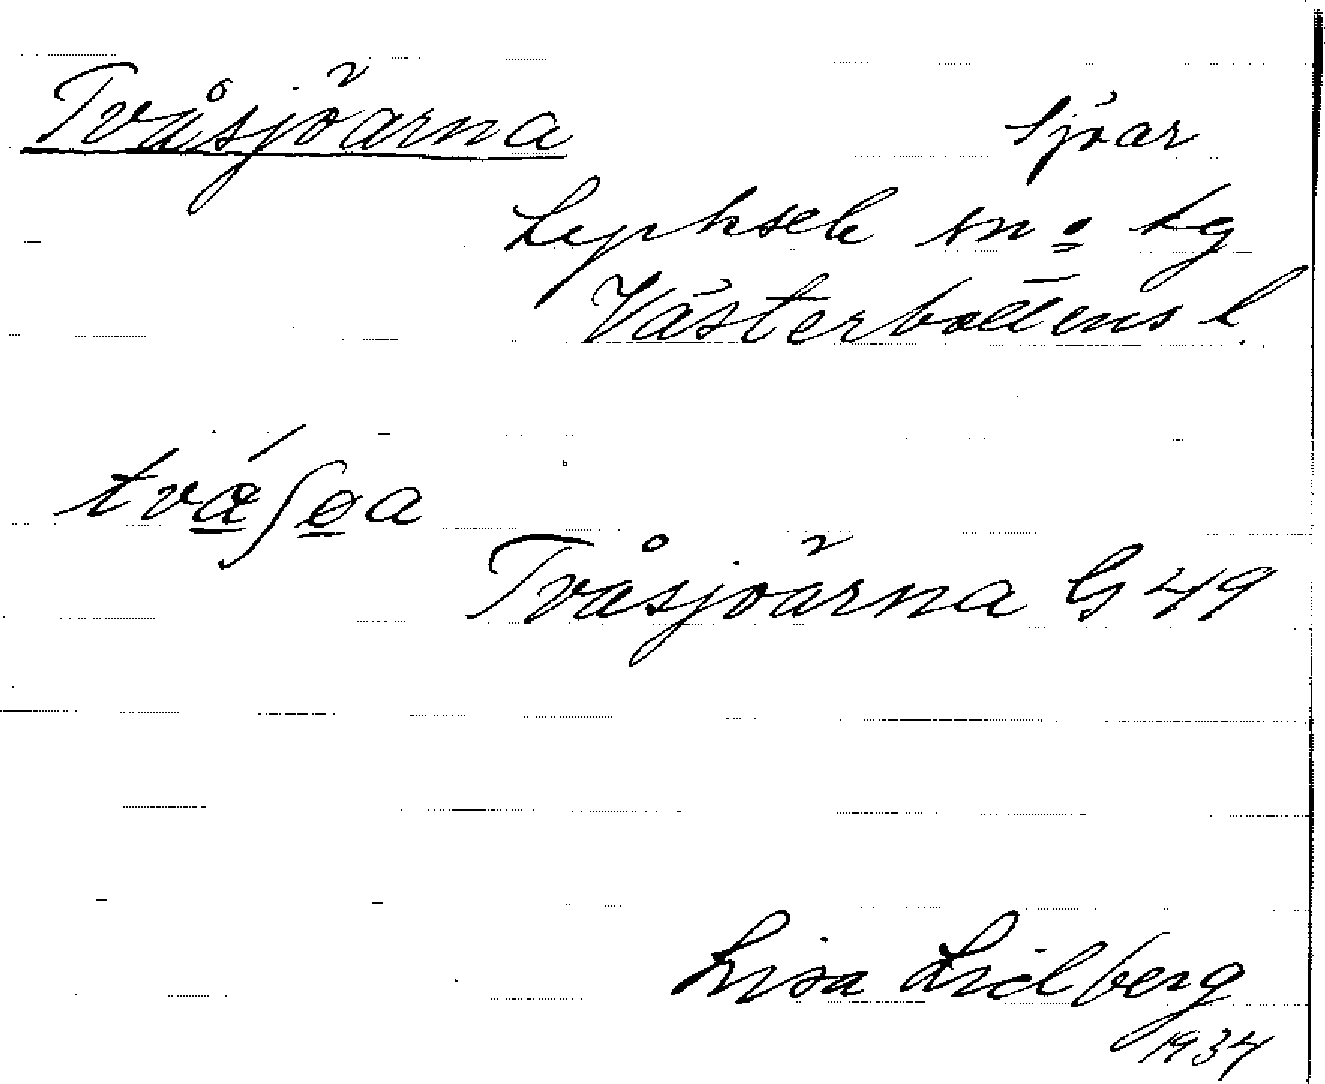 Tvåsjöarna sjöar
Lycksele sn o lg
Västerbottens l.
tvǽʃøa
Tvåsjöarna G 49
Lisa Lidberg
1934